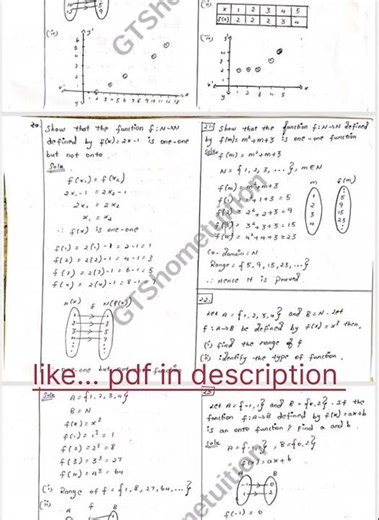 (ii)
x 1 2 3 4 5
f(x) 2 2 2 3 4
(iii)
20. Show that the function f : N→N
defined by f(x) = 2x-1 is one-one
but not onto.
Soln
f(x₁) = f(x₂)
2x₁-1 = 2x₂-1
2x₁ = 2x₂
x₁ = x₂
∴ f(x) is one-one
f(1) = 2(1)-1 = 2-1 = 1
f(2) = 2(2)-1 = 4-1 = 3
f(3) = 2(3)-1 = 6-1 = 5
f(4) = 2(4)-1 = 8-1 =
N(x) f N(f(x))
one but not onto function
21. Show that the function f : N→N defined
by f(m) = m²+m+3 is one-one function
Soln
f(m) = m²+m+3
N = {1, 2, 3, ...}, m∈N
m f(m)
f(m) = m²+m+3
f(1) = 1²+1+3 = 5
f(2) = 2²+2+3 = 9
f(3) = 3²+3+3 = 15
f(4) = 4²+4+3 = 23
1
2
3
4
5
9
15
23
Co-domain = N
Range = {5, 9, 15, 23, ...}
∴ Hence it is proved
22.
Let A = {1, 2, 3, 4} and B = N. Let
f : A→B be defined by f(x) = x³ then,
(i) find the range of f
(ii) identify the type of function.
like... pdf in description
Soln A = {1, 2, 3, 4}
B = N
f(x) = x³
f(1) = 1³ = 1
f(2) = 2³ = 8
f(3) = 3³ = 27
f(4) = 4³ = 64
(i) Range of f = {1, 8, 27, 64, ...}
(ii)
Let A = {-1, 1} and B = {0, 2}. If the
function f : A→B defined by f(x) = ax+b
is an onto function? find a and b.
Soln
A = {-1, 1}, B = {0, 2}
f(x) = ax+b
A B
f(-1) = 0
GTShometuition